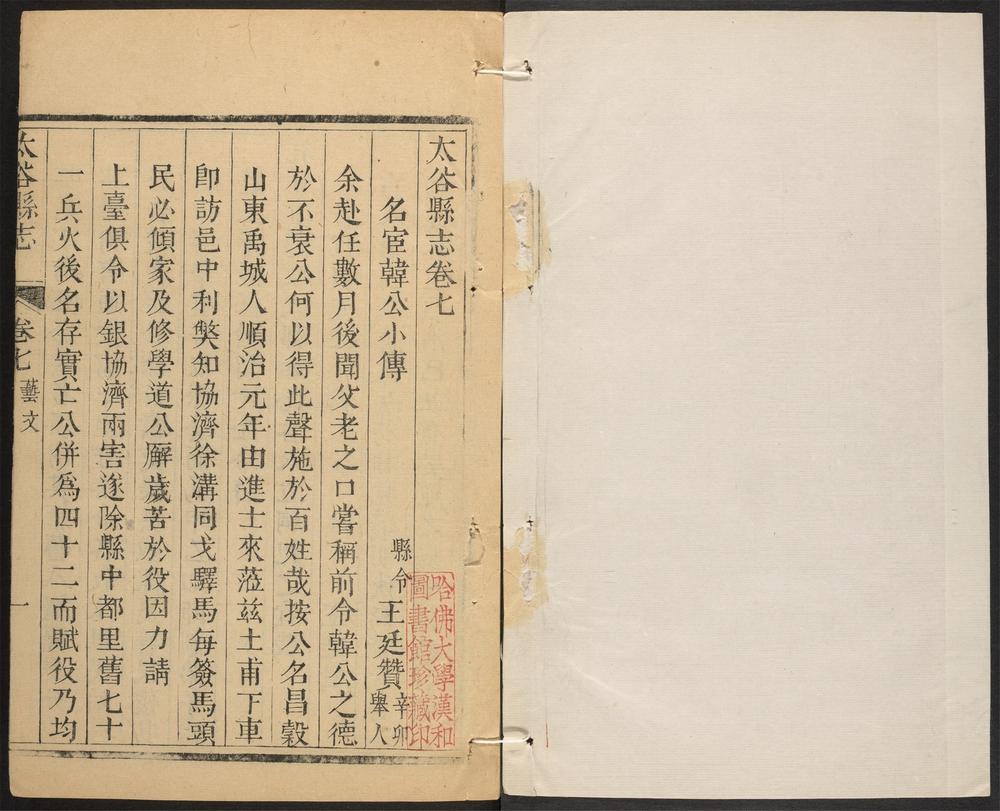 太谷縣志卷七
名宦韓公小傳
縣令王廷贊辛卯舉人
余赴任數月後聞父老之口嘗稱前令韓公之德
於不衰公何以得此聲施於百姓哉按公名昌穀
山東禹城人順治元年由進士來蒞兹土甫下車
卽訪邑中利獘知協濟徐溝同戈驛馬每簽馬頭
民必傾家及修學道公廨歲苦於役因力請
上臺俱令以銀協濟兩害遂除縣中都里舊七十
一兵火後名存實亡公併爲四十二而賦役乃均
太谷縣志
卷七
藝文
一
哈佛大學漢和
圖書館珍藏印